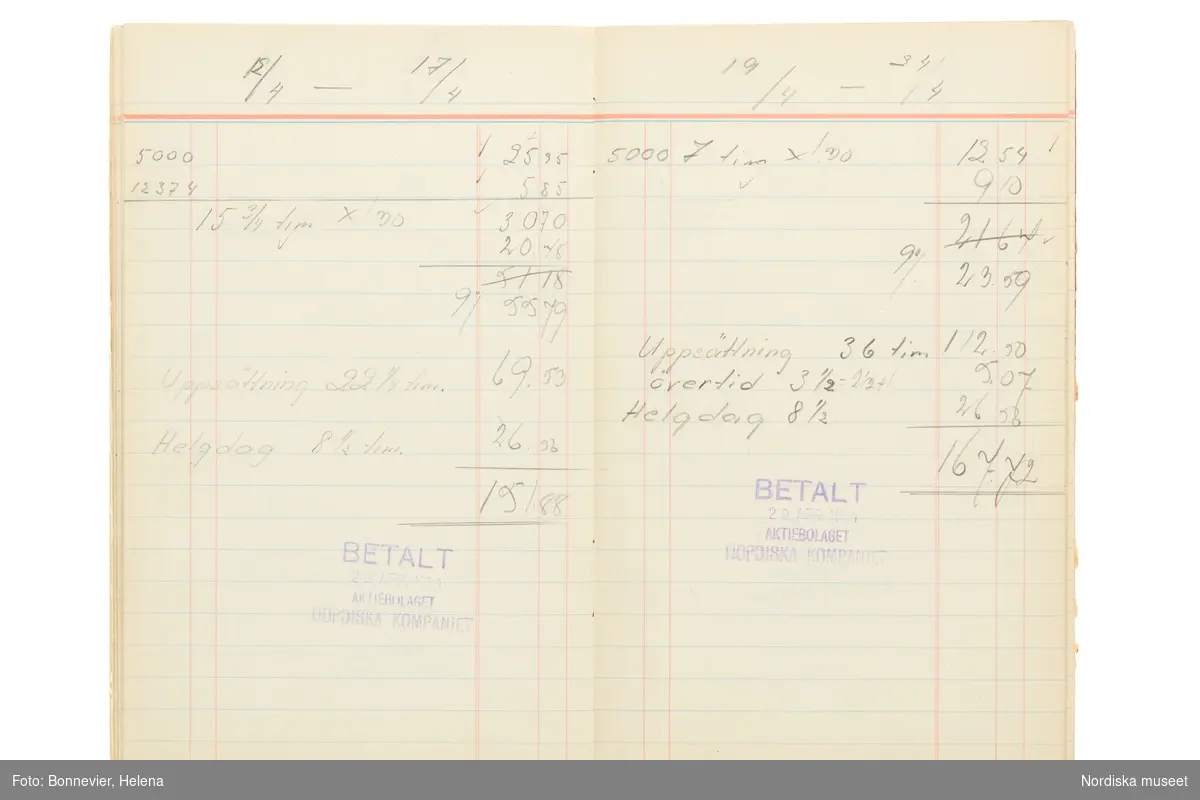 12/4 — 17/4
5000
12374 5 85
15 3/4 tim x 1 30 30 70
20 48
51 18
9% 55 79
Uppsättning 22 1/4 tim. 69.53
Helgdag 8 1/2 tim. 26.56
151.88
BETALT
AKTIEBOLAGET
NORDISKA KOMPANIET
19/4 — 24/4
5000 7 tim x 1 30 12 54
9 10
21 64
9% 23.59
Uppsättning 36 tim 112.50
övertid 3 1/2 = 5.07
Helgdag 8 1/2 26 56
167.72
BETALT
AKTIEBOLAGET
NORDISKA KOMPANIET
Foto: Bonnevier, Helena
Nordiska museet